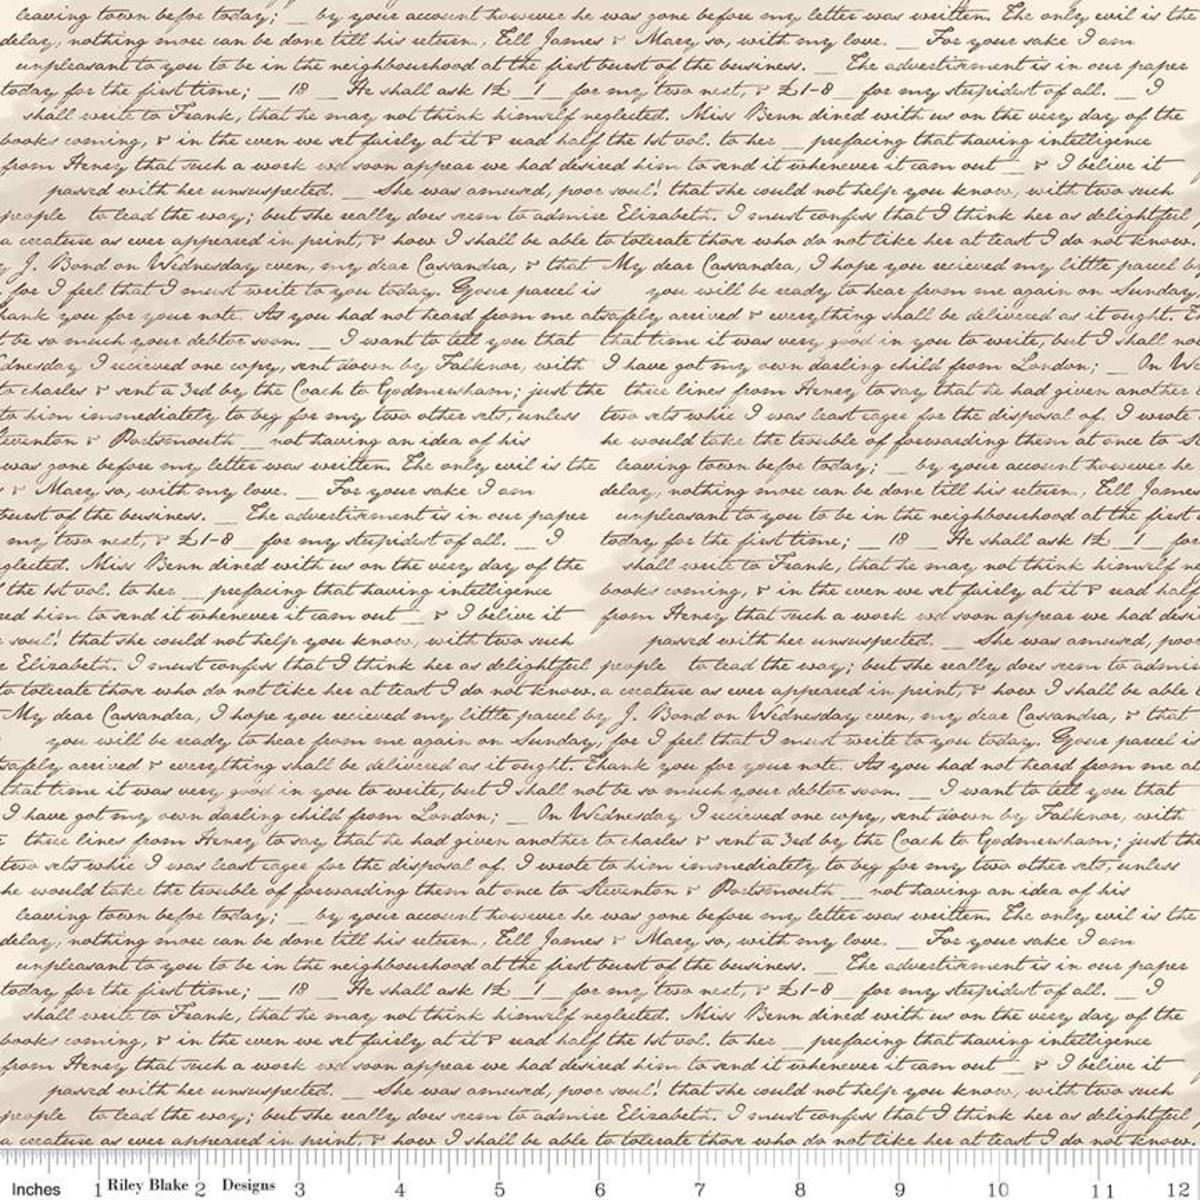 leaving town befor today; _ by your account however he was gone before my letter was written. The only evil is the
delay, nothing more can be done till his return., Tell James & Mary so, with my love. _ For your sake I am
unpleasant to you to be in the neighbourhood at the first burst of the beusiness. _ The advertisment is in our paper
today for the first time; _ 18 _ He shall ask 1£ _ 1 _ for my two next, & £1-8 _ for my stupidest of all. _ I
shall write to Frank, that he may not think himself neglected. Miss Benn dined with us on the very day of the
books coming, & in the even we set fairly at it & read half the 1st vol. to her _ prefacing that having intelligence
from Henry that such a work wd soon appear we had desired him to send it whenever it cam out _ & I believe it
passed with her unsuspected. _ She was amused, poor soul! that she could not help you know, with two such
people to lead the way; but she really does seem to admire Elizabeth. I must confess that I think her as delightful
a creature as ever appeared in print, & how I shall be able to tolerate those who do not like her at least I do not know.
y J. Bond on Wednesday even, my dear Cassandra, & that My dear Cassandra, I hope you recieved my little parcel by
, for I feel that I must write to you today. Your parcel is you will be ready to hear from me again on Sunday,
hank you for your note. As you had not heard from me at safely arrived & everything shall be delivered as it ought. Th
t be so much your debtor soon. _ I want to tell you that that time it was very good in you to write, but I shall not
dnesday I recieved one copy, sent down by Falknor, with I have got my own darling child from London; _ On We
to charles & sent a 3rd by the Coach to Godmersham; just the three lines from Henry to say that he had given another
to him immediately to beg for my two other sets, unless two sets whic I was least eager for the disposal of. I wrote
teventon & Portsmouth _ not having an idea of his he would take the trouble of forwarding them at once to St
was gone before my letter was written. The only evil is the leaving town befor today; _ by your account however he
& Mary so, with my love. _ For your sake I am delay, nothing more can be done till his return., Tell James
burst of the beusiness. _ The advertisment is in our paper unpleasant to you to be in the neighbourhood at the first
my two next, & £1-8 _ for my stupidest of all. _ I today for the first time; _ 18 _ He shall ask 1£ _ 1 _ for
glected. Miss Benn dined with us on the very day of the shall write to Frank, that he may not think himself ne
the 1st vol. to her _ prefacing that having intelligence books coming, & in the even we set fairly at it & read half
red him to send it whenever it cam out _ & I believe it from Henry that such a work wd soon appear we had desi
soul! that she could not help you know, with two such passed with her unsuspected. _ She was amused, poor
e Elizabeth. I must confess that I think her as delightful people to lead the way; but she really does seem to admir
to tolerate those who do not like her at least I do not know. a creature as ever appeared in print, & how I shall be able
My dear Cassandra, I hope you recieved my little parcel by J. Bond on Wednesday even, my dear Cassandra, & that
you will be ready to hear from me again on Sunday, for I feel that I must write to you today. Your parcel is
safely arrived & everything shall be delivered as it ought. Thank you for your note. As you had not heard from me at
that time it was very good in you to write, but I shall not be so much your debtor soon. _ I want to tell you that
I have got my own darling child from London; _ On Wednesday I recieved one copy, sent down by Falknor, with
three lines from Henry to say that he had given another to charles & sent a 3rd by the Coach to Godmersham; just the
two sets whic I was least eager for the disposal of. I wrote to him immediately to beg for my two other sets, unless
he would take the trouble of forwarding them at once to Steventon & Portsmouth _ not having an idea of his
leaving town befor today; _ by your account however he was gone before my letter was written. The only evil is the
delay, nothing more can be done till his return., Tell James & Mary so, with my love. _ For your sake I am
unpleasant to you to be in the neighbourhood at the first burst of the beusiness. _ The advertisment is in our paper
today for the first time; _ 18 _ He shall ask 1£ _ 1 _ for my two next, & £1-8 _ for my stupidest of all. _ I
shall write to Frank, that he may not think himself neglected. Miss Benn dined with us on the very day of the
books coming, & in the even we set fairly at it & read half the 1st vol. to her _ prefacing that having intelligence
from Henry that such a work wd soon appear we had desired him to send it whenever it cam out _ & I believe it
passed with her unsuspected. _ She was amused, poor soul! that she could not help you know, with two such
people to lead the way; but she really does seem to admire Elizabeth. I must confess that I think her as delightful
a creature as ever appeared in print, & how I shall be able to tolerate those who do not like her at least I do not know.
Inches 1 Riley Blake 2 Designs 3 4 5 6 7 8 9 10 11 12